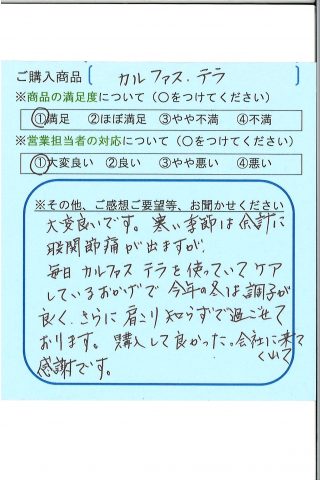 ご購入商品 [ カルファス・テラ ]
※商品の満足度について(○をつけてください)
①満足 ②ほぼ満足 ③やや不満 ④不満
※営業担当者の対応について(○をつけてください)
①大変良い ②良い ③やや悪い ④悪い
※その他、ご感想ご要望等、お聞かせください
大変良いです。寒い季節は余計に
股関節痛が出ますが、
毎日カルファステラを使っていてケア
しているおかげで今年の冬は調子が
良く、さらに肩こり知らずで過ごせて
おります。購入して良かった。会社に来て
くれて
感謝です。